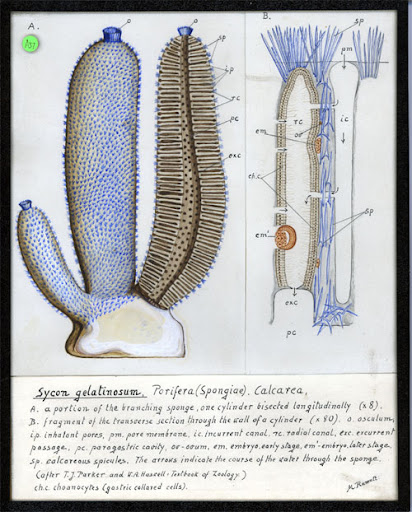 A.
o
o
sp
i.p
rc
pc
exc
B.
sp
pm
rc
ic
ov
em
ch.c
sp
em'
exc
pc
Sycon gelatinosum. Porifera (Spongiae). Calcarea,
A. a portion of the branching sponge, one cylinder bisected longitudinally (x8).
B. fragment of the transverse section through the wall of a cylinder (x80). o. osculum,
i.p. inhalant pores, pm. pore membrane, ic. incurrent canal, rc. radial canal, exc. excurrent
passage. pc. paragastric cavity, ov-ovum, em. embryo early stage, em'-embryo, later stage.
sp. calcareous spicules. The arrows indicate the course of the water through the sponge.
(after T.J. Parker and W.A. Haswell-Textbook of Zoology.)
ch.c choanocytes (gastric collared cells).